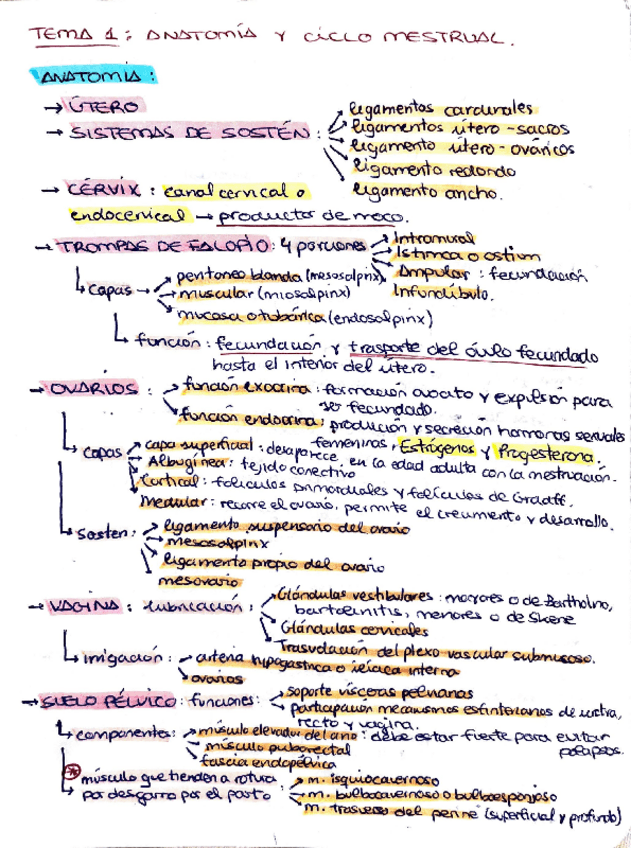 TEMA 1: ANATOMÍA Y CICLO MESTRUAL.
ANATOMÍA:
→ ÚTERO
→ SISTEMAS DE SOSTÉN: ligamentos cardinales
ligamentos útero-sacros
ligamento útero-ováricos
ligamento redondo
ligamento ancho.
→ CÉRVIX: canal cervical o
endocervical → productor de moco.
→ TROMPAS DE FALOPIO: 4 porciones Intramural
Istmica o ostium
Ampular: fecundación
Infundíbulo.
capas → peritoneo blanda (mesosalpinx)
muscular (miosalpinx)
mucosa o tubárica (endosalpinx)
función: fecundación y trasporte del óvulo fecundado
hasta el interior del útero.
→ OVARIOS: función exocrina: formación ovocito y expulsión para
ser fecundado.
función endocrina: producción y secreción hormonas sexuales
femeninas, Estrógenos y Progesterona.
capas capa superficial: desaparece en la edad adulta con la mestruación.
Albugínea: tejido conectivo
Cortical: folículos primordiales y folículos de Graaff.
Medular: recorre el ovario, permite el crecimiento y desarrollo.
Sosten: ligamento suspensorio del ovario
mesosalpinx
ligamento propio del ovario
mesovario
→ VAGINA: lubricación: Glándulas vestibulares: mayores o de Bartholino,
bartolinitis, menores o de Skene
Glándulas cervicales
Trasudación del plexo vascular submucoso.
irrigación: arteria hipogástrica o ilíaca interna
ováricos
→ SUELO PÉLVICO: funciones: soporte vísceras pelvianas
participación mecanismos esfinterianos de uretra,
recto y vagina.
componentes: músculo elevador del ano: debe estar fuerte para evitar
prolapsos.
músculo puborectal
fascia endopélvica
* músculo que tienden a rotura
por desgarro por el parto m. isquiocavernoso
m. bulbocavernoso o bulboesponjoso
m. trasverso del periné (superficial y profundo)